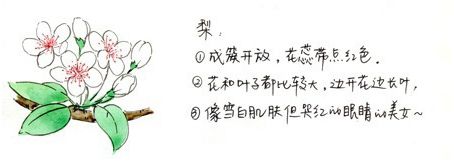 梨:
①成簇开放,花蕊带点红色.
②花和叶子都比较大,边开花边长叶,
③像雪白肌肤但哭红的眼睛的美女~